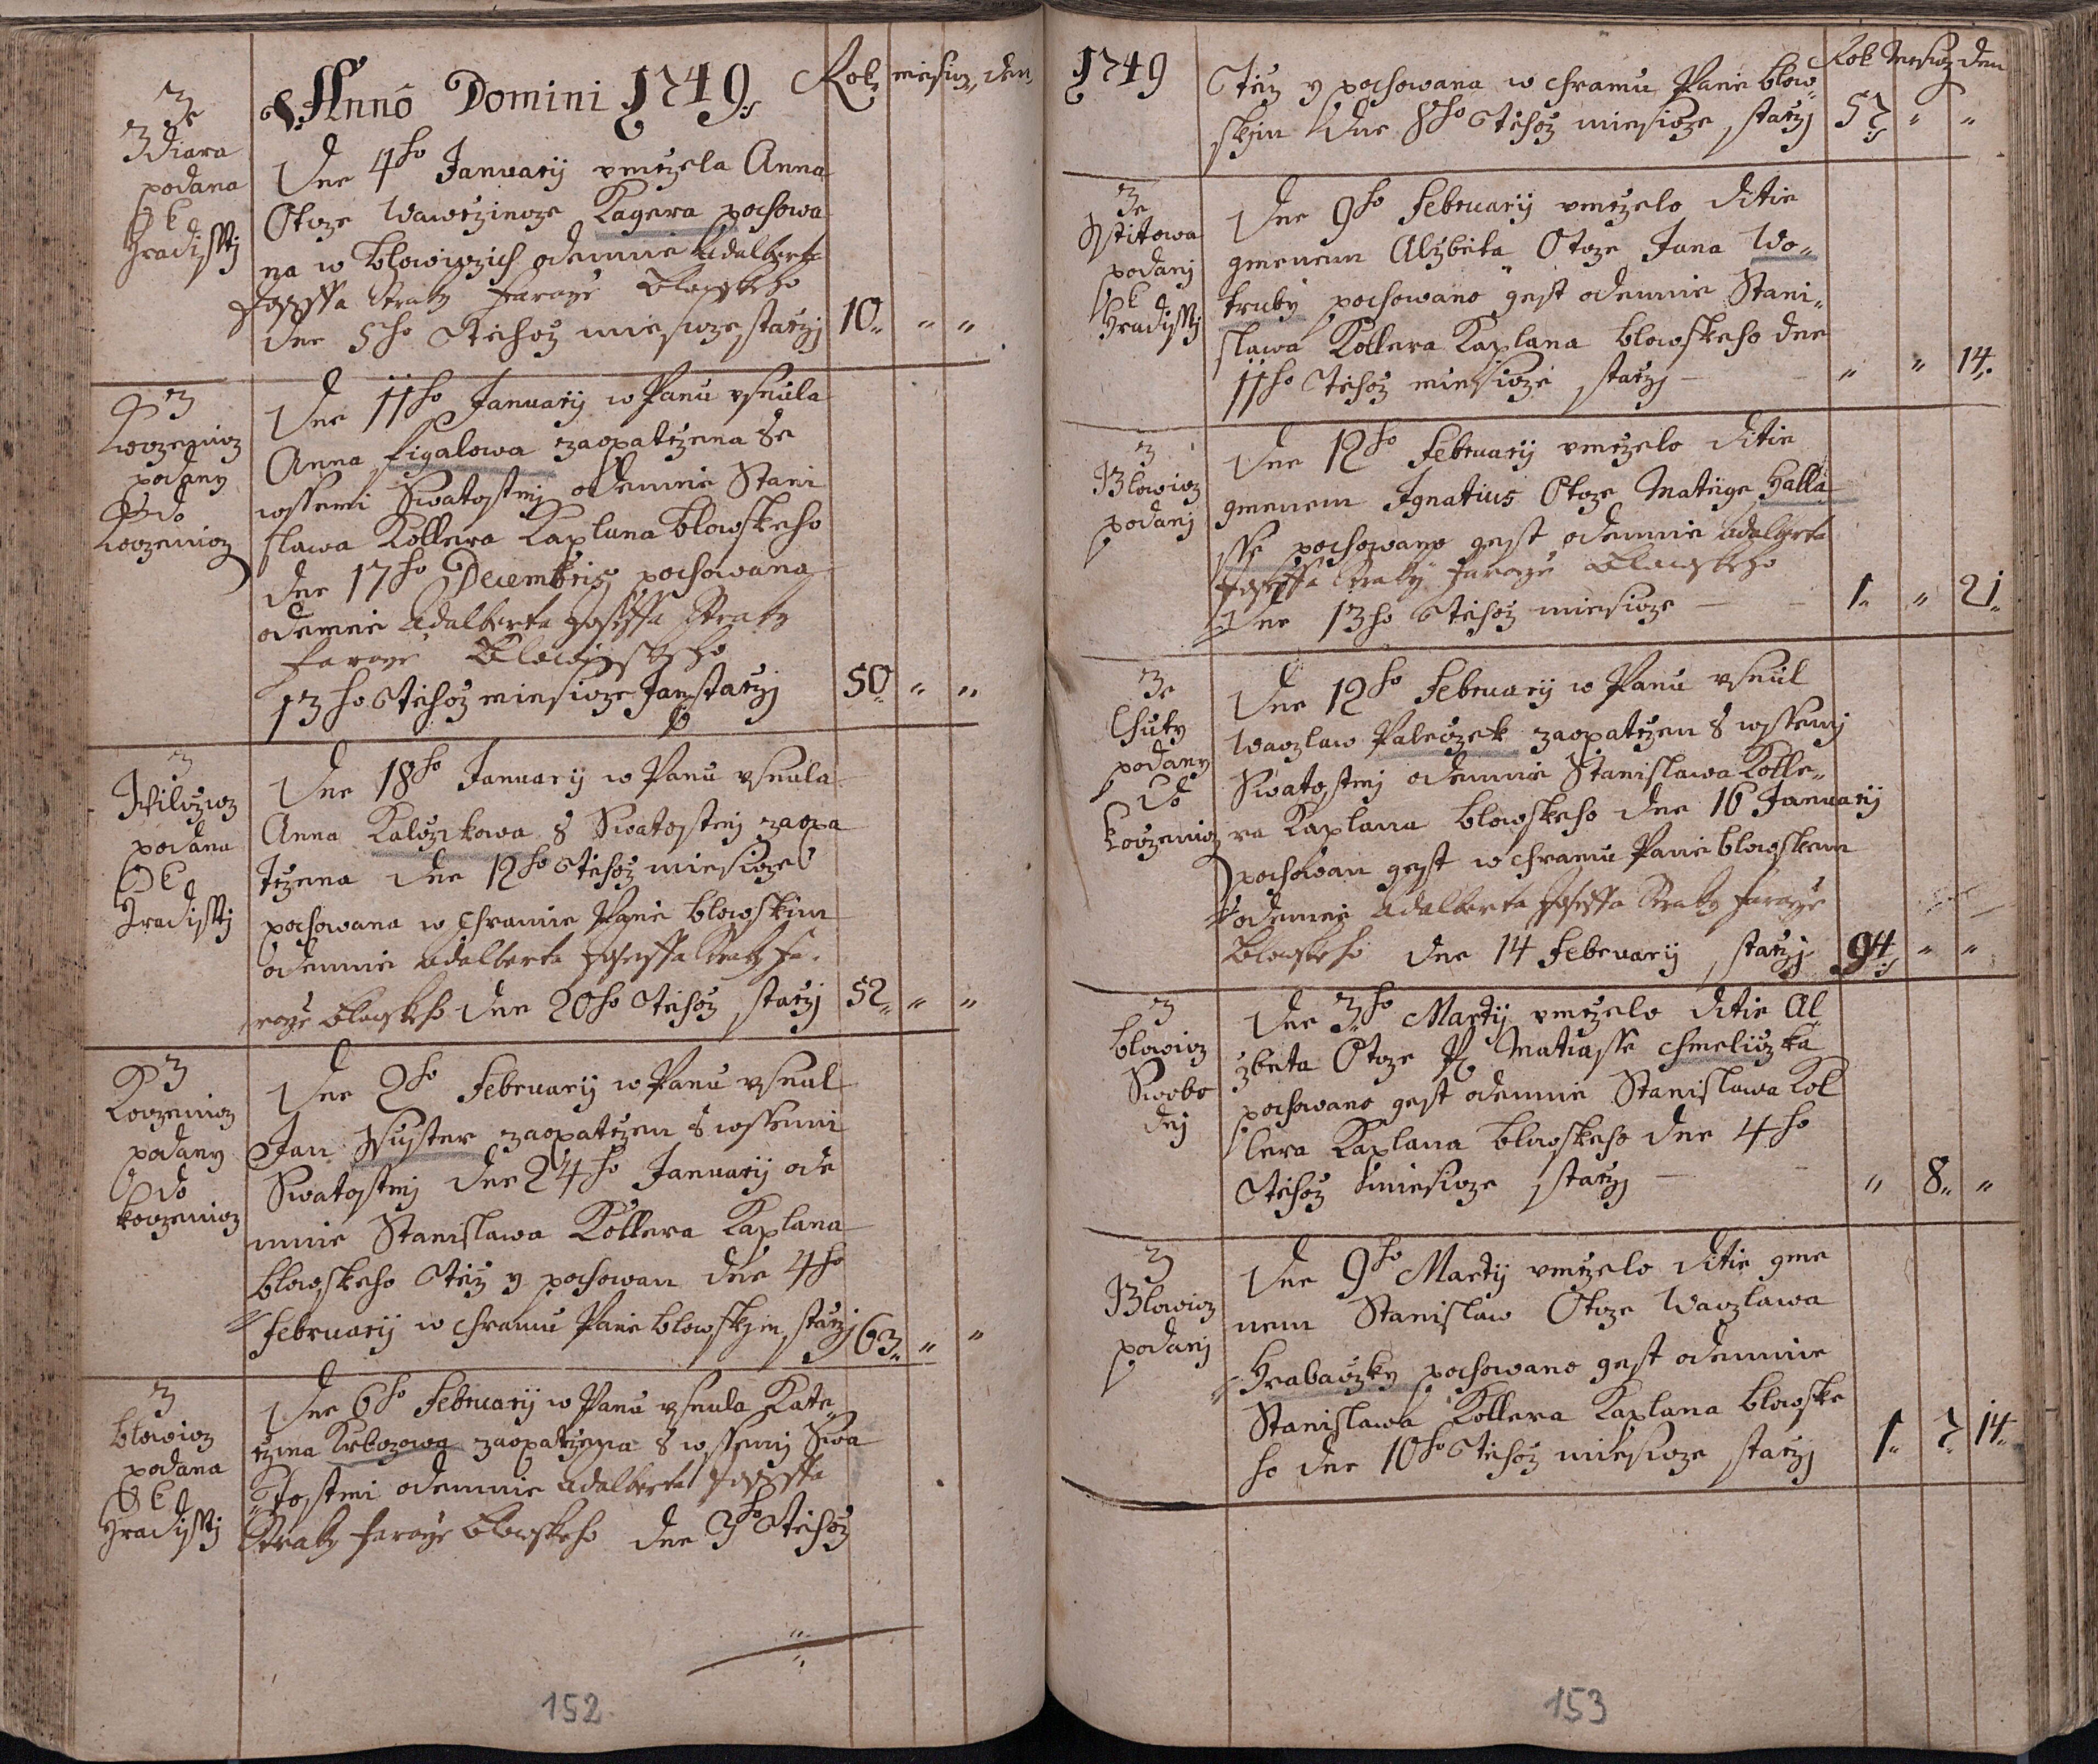 Annô Domini 1749. Rok, miesicz, den,
Ze
Zdiara
podana
k
Hradisstj
Dne 4ho Januarij vmrzela Anna
Otcze Wawrzincze Kagera pochowa
na w Blowiczich odemne Adalberta
Josessa Kratky Faraże Blowskeho
dne 5ho Tehoż miesicze starzj 10. " "
Z
Kotczenicz
podany
do
Kotczenicz
Dne 11ho Januarij w Panu vsnula
Anna Figalowa zaopatrzena se
wssemi Swatostmj odemnie Stani
slawa Kollera Kaplana Blowskeho
dne 17ho Decembris pochowana
odemnie Adalberta Josessa Kratky
Faraże
13ho Tehoż miesicze Jan starzj 50 " "
Z
podana
k
Hradisstj
Dne 18ho Januarij w Panu vsnula
Anna Kalczikowa s Swatostmj zaopa
trzena dne 12ho Tehoż miesicze
pochowana w chramie Panie blowskim
odemnie Adalberta Josessa Kratky Fa.
raże Blowskeho dne 20ho Tehoż starzj 52. " "
Z
Kotczenicz
podany
do
kotczenicz
Dne 2ho Februarij w Panu vsnul
Jan zaopatrzen s wssemi
Swatostmj dne 24ho Januarij ode
mnie Stanislawa Kollera Kaplana
blowskeho Téż y pochowan dne 4ho
Februarij w chramu Panie blowskjm starzj 63. " "
Z
blowicz
podana
k
Hradisstj
Dne 6ho Februarij w Panu vsnula Kate,
rzina zaopatrzena s wssemj Swa
tostmi odemnie Adalberta Josessa
Kratky Faraże Blowskeho dne Tehoż
152
1749 Rok Mesicz den
Téż y pochowana w chramu Panie blow,
skjm dne 8ho Tehoż miesicze starzj 57. " "
Ze
Sstitowa
podanj
k
Hradisstj
Dne 9ho Februarij vmrzelo ditie
gmenem Alzbeta Otcze Jana Wo,
truby pochowano gest odemnie Stani,
slawa Kollera Kaplana blowskeho dne
11ho Tehoż miesicze starzj " " 14.
Z
Blowicz
podanj
Dne 12ho Februarij vmrzelo ditie
gmenem Ignatius Otcze Matiege Halla
sse pochowano gest odemnie Adalberta
Josessa Kratky Faraże Blowskeho
Dne 13ho Tehoż miesicze 1. " 21.
Ze
Lhuty
podany
do
kotczenicz
Dne 12ho Februarij w Panu vsnul
Waczlaw Paleczek zaopatrzen s wssemj
Swatostmj odemnie Stanislawa Kolle,
ra Kaplana blowskeho dne 16 Januarij
pochowan gest w chramu Panie blowskem
odemnie Adalberta Josessa Kratky Faraże
Blowskeho dne 14 Februarij starzj 94. " "
Z
blowicz
Swobo
dnj
Dne 3ho Martij vmrzelo ditie Al
zbeta Otcze P. Matiasse Chmeliczka
pochowano gest odemnie Stanislawa Kol
lera Kaplana blowskeho dne 4ho
Tehoż miesicze starzj " 8. "
Z
Blowicz
podanj
Dne 9ho Martij vmrzelo ditie gme
nem Stanislaw Otcze Waczlawa
Hrabaczky pochowano gest odemnie
Stanislawa Kollera Kaplana blowske
ho dne 10ho Tehoż miesicze starzj 1. 7. 14.
153